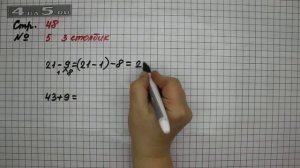 4 5
Стр. 48
№ 5 3 столбик
21 - 9 = (21 - 1) - 8 = 2
1 8
43 + 9 =